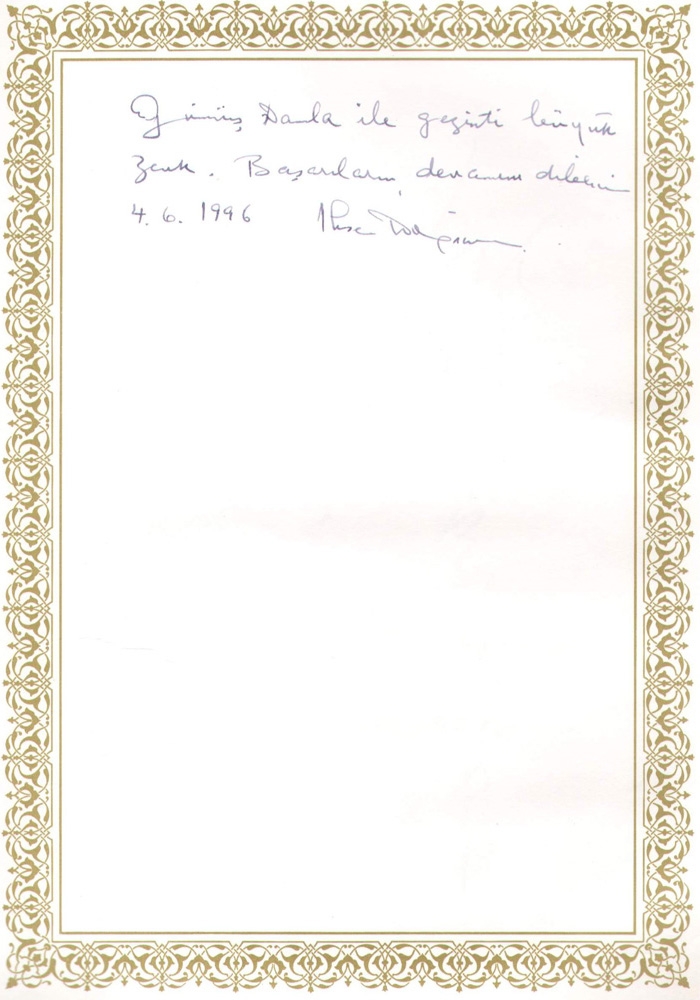 Gümüş Damla ile gezinti büyük
zevk. Başarıların devamını dilerim
4. 6. 1996